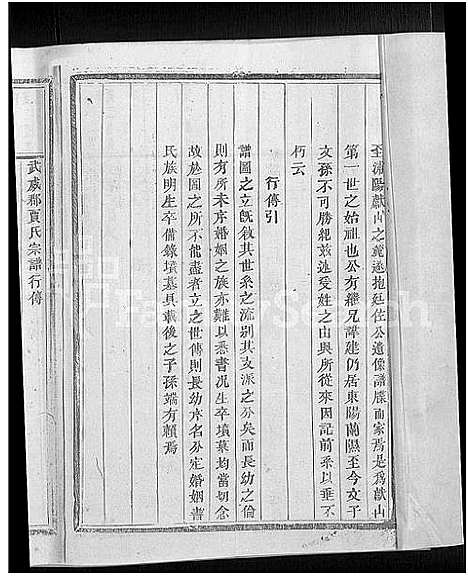 至浦陽獻山之麓遂抱廷佐公遺像譜牒而家焉是為獻山
第一世之始祖也公有繼兄諱建仍居東陽蘭隰至今文子
文孫不可勝紀茲述受姓之由與所從來因記前系以垂不
朽云
行傳引
譜圖之立既敘其世系之流别其支派之分矣而長幼之倫
則有所未序婚姻之族亦難以悉書况生卒墳墓均當切念
故於圖之所不能盡者立之世傳則長幼序名分定婚姻書
氏族明生卒備錄墳墓具載後之子孫端有賴焉
武威郡賈氏宗譜行傳